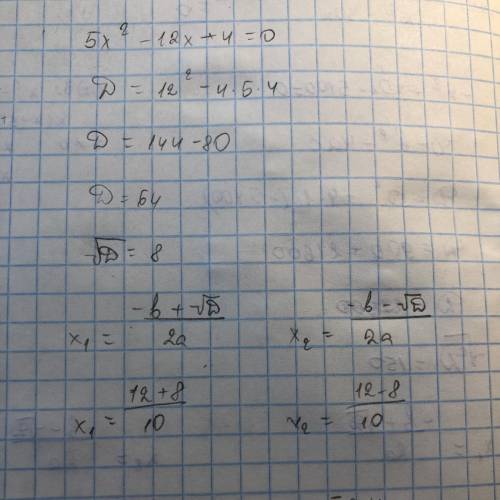 5x² - 12x + 4 = 0
D = 12² - 4·5·4
D = 144 - 80
D = 64
√D = 8
x₁ = (-b + √D)/2a    x₂ = (-b - √D)/2a
x₁ = (12 + 8)/10    x₂ = (12 - 8)/10